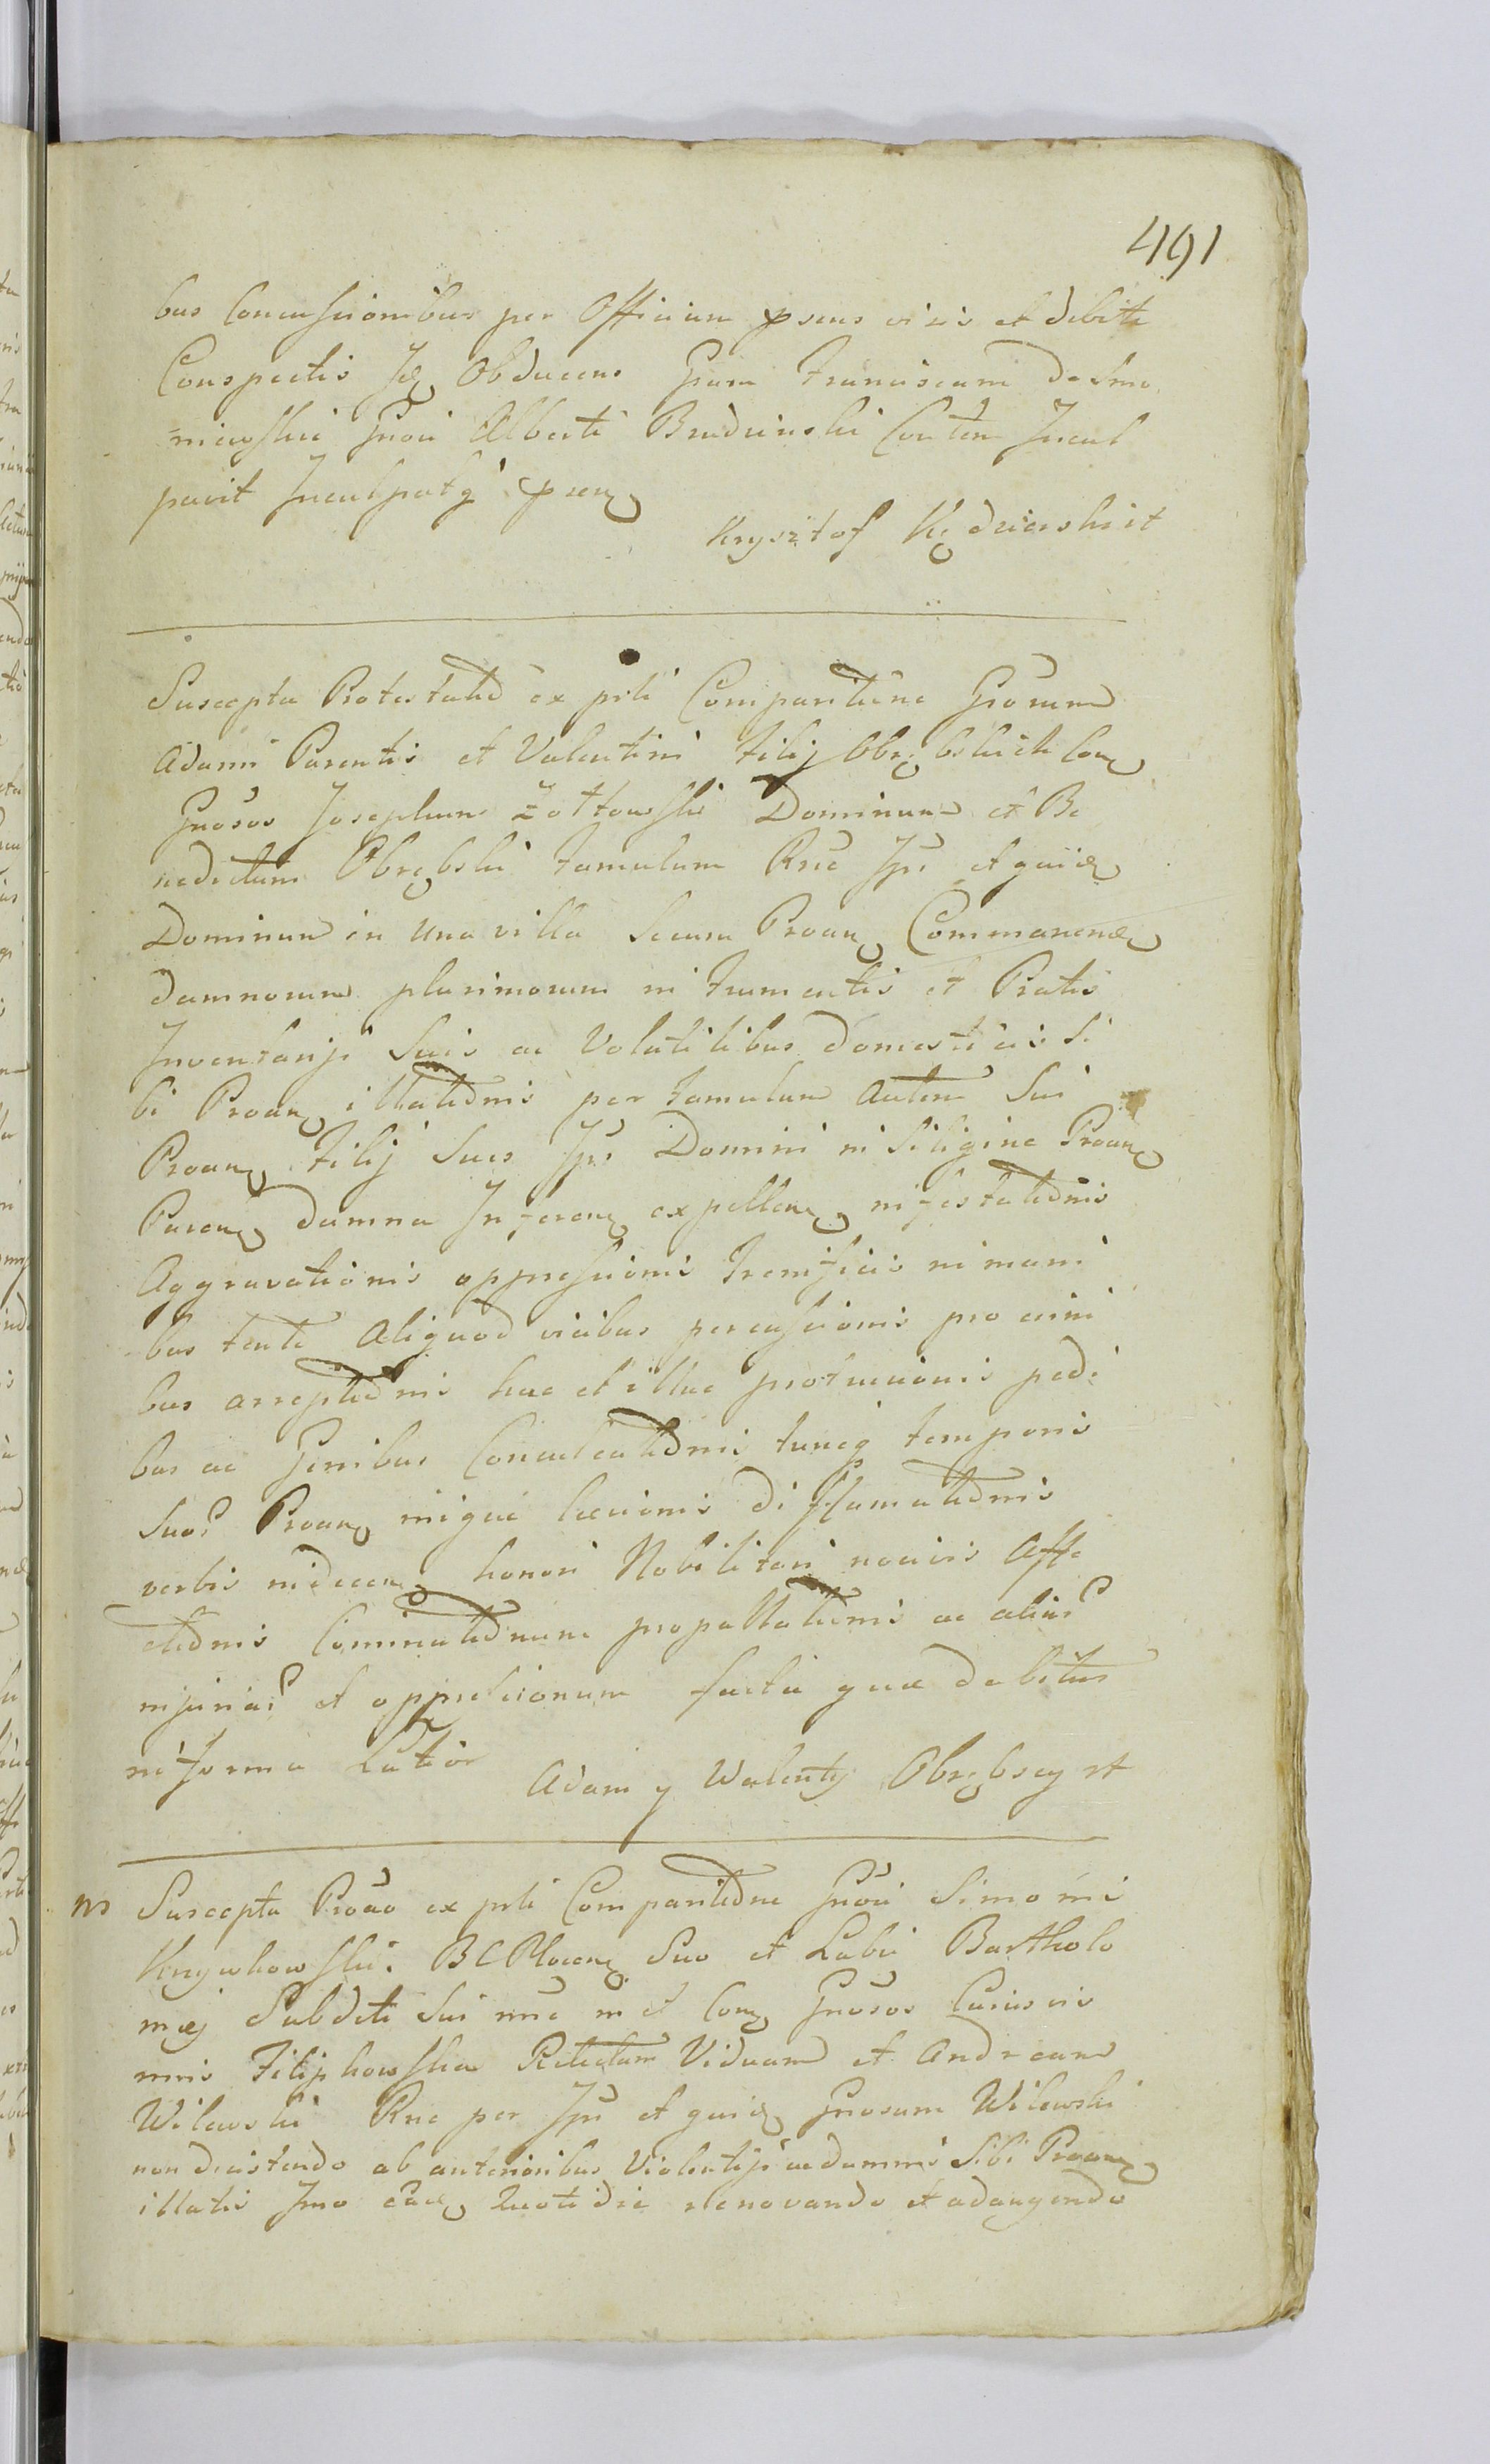 491
bus Concussionibus per Officium psens visis et debite
Conspectis Id Obducens Grum Franciscum Dasmo
niewski Gnosi Alberti Brudzinski Conten Incul
pavit Inculpatq psen
Krysztof Kędzierski it
Suscepta Protestatio ex prti Comparitione Grorum
Adami Parentis et Valentini Filij Obrębskich Con
Gnosos Josephum Żołtowski Dominum et Be
nedictum Obrębski Famulum Rne Jpi et quid
Dominum in una villa Secum Proan Commanend
damnorum plurimorum in Frumentis et Pratis
Inventarijs Suis ac Volatilibus domesticis Si
bi Proan illationis per Famulum Autem Sui
Proan Filij Sues Jpi Domini in Siligine Proan
Paren damna Inferen expellen infestationis
Aggravationis oppressionis Terrificis in mani
bus tente Aliquod vicibus percussionis pro crini
bus arreptionis huc et illuc protrusionis pedi
bus ac Genibus Conculcationis tuncq temporis
Suor Proan iniquae laesionis diffamationis
verbis indecen honori Nobilitari nocivis Affe
ctionis Comminationum propallationis ac aliar
injuriar et oppressionum facta quae debitus
in forma Latior
Adam y Walenty Obrębscy it
ns Suscepta Proao ex prti Comparitione Gnosi Simonis
Krzywkowski BC Plocen Suo et Labi Bartholo
maej Subditi Sui nne in et Con Gnosos
nnis Filipkowska Relictam Viduam et Andream
Wilewski Rne per Jpi et quid Gnosum Wilewski
non disistendo ab anterioribus Violentijs ac damnis Sibi Proan
illatis Imo Ead Quotidie renovando et adaugendo